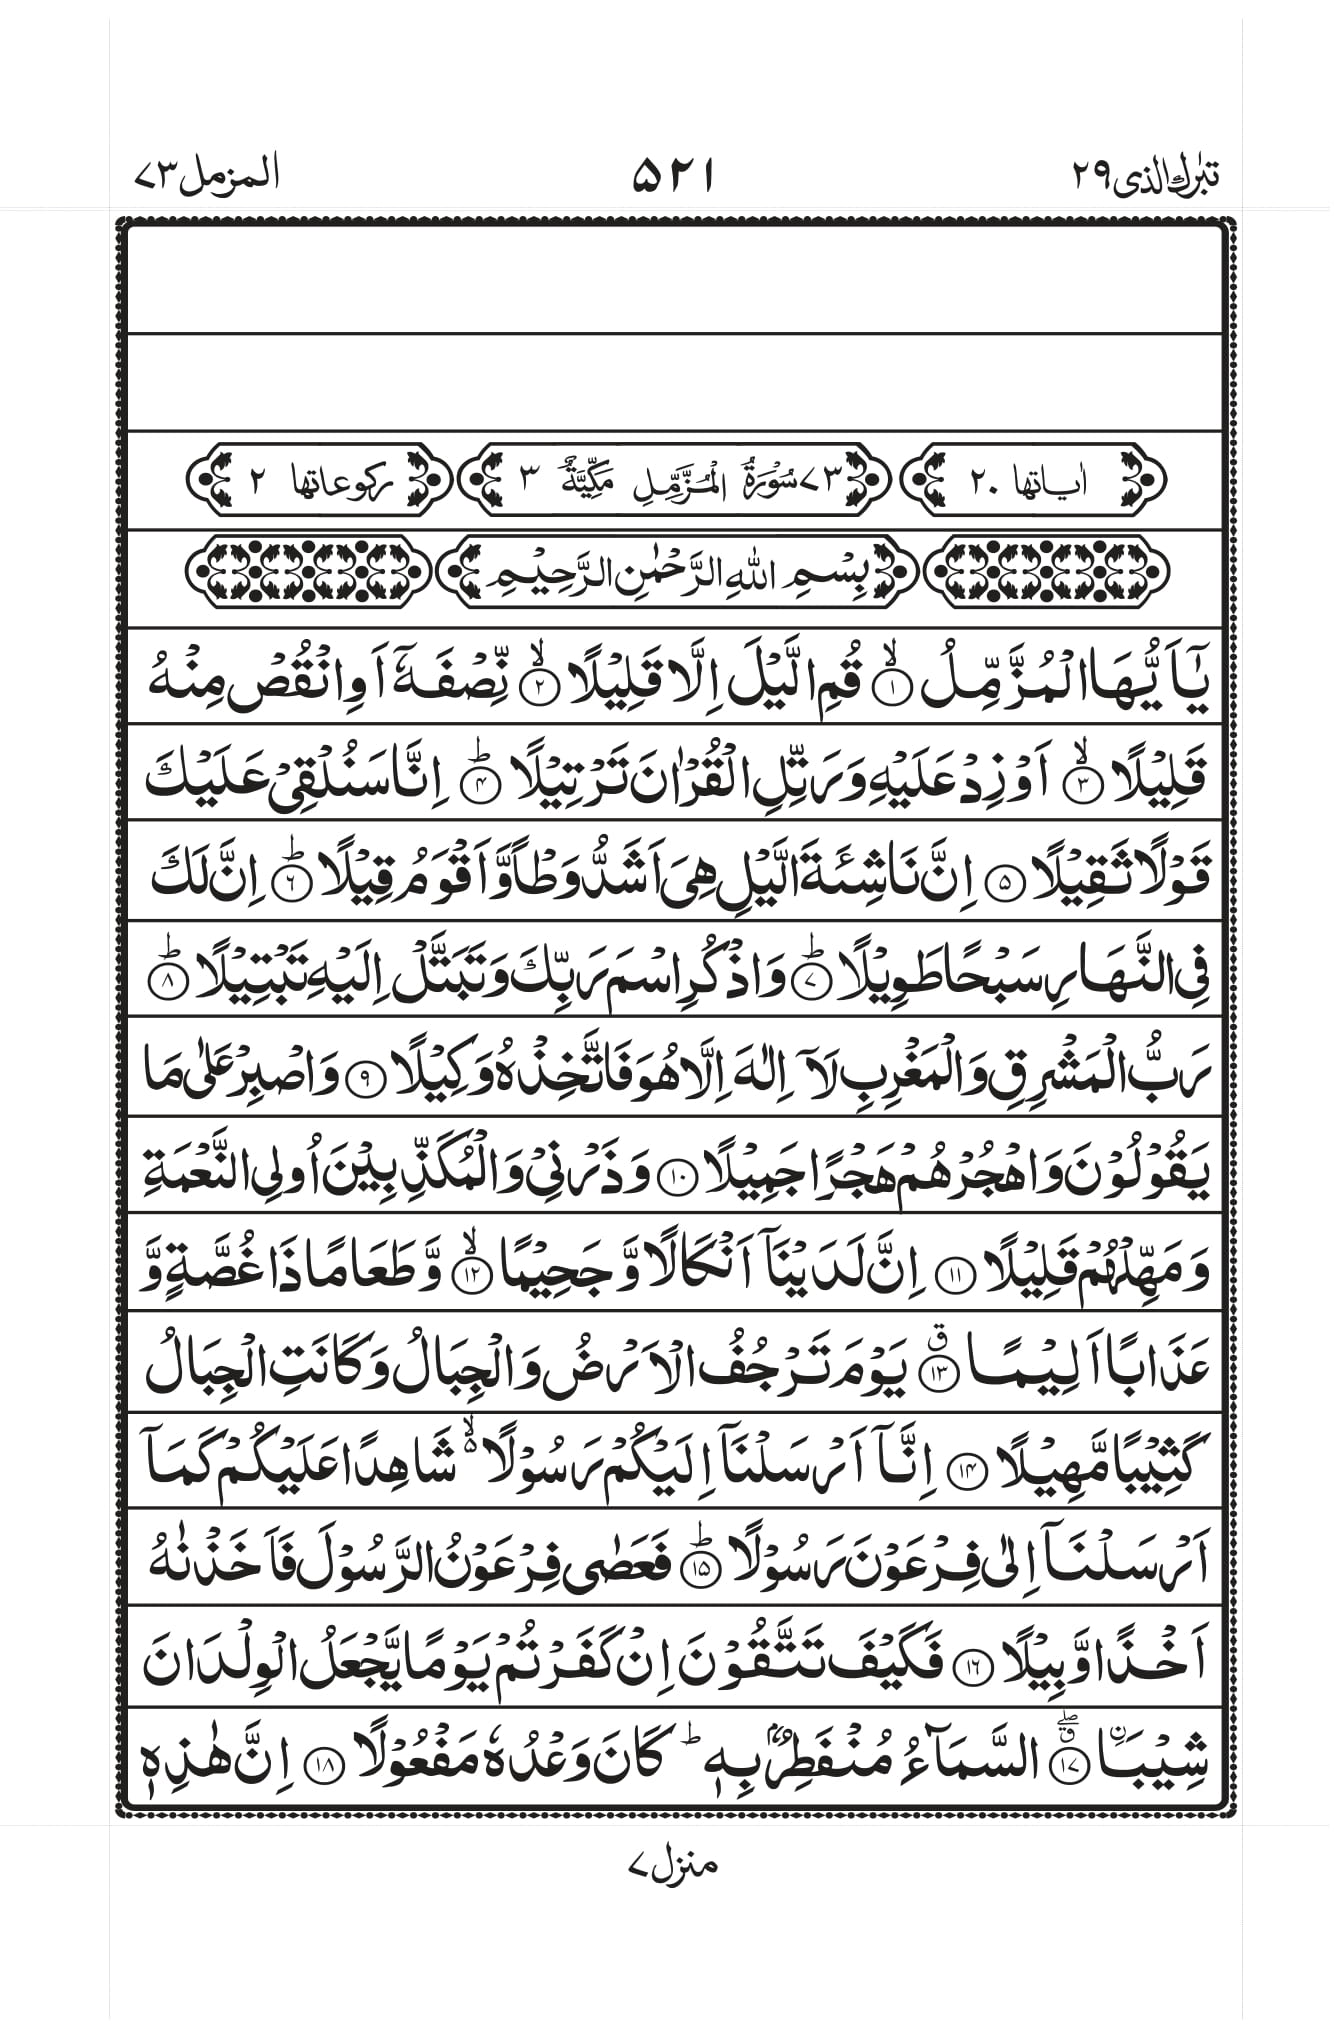 تبٰرك الذی ۲۹ ۵۲۱ المزمل ۷۳
اٰیاتها ۲۰ ۷۳ سُوْرَةُ الْمُزَّمِّلِ مَكِّیَّةٌ ۳ ركوعاتها ۲
بِسْمِ اللهِ الرَّحْمٰنِ الرَّحِیْمِ
یٰۤاَیُّهَا الْمُزَّمِّلُ ۙ‏﴿۱﴾ قُمِ الَّیْلَ اِلَّا قَلِیْلًا ۙ‏﴿۲﴾ نِّصْفَهٗۤ اَوِ انْقُصْ مِنْهُ
قَلِیْلًا ۙ‏﴿۳﴾ اَوْ زِدْ عَلَیْهِ وَ رَتِّلِ الْقُرْاٰنَ تَرْتِیْلًا ؕ‏﴿۴﴾ اِنَّا سَنُلْقِیْ عَلَیْكَ
قَوْلًا ثَقِیْلًا ﴿۵﴾ اِنَّ نَاشِئَةَ الَّیْلِ هِیَ اَشَدُّ وَطْاً وَّ اَقْوَمُ قِیْلًا ؕ‏﴿۶﴾ اِنَّ لَكَ
فِی النَّهَارِ سَبْحًا طَوِیْلًا ؕ‏﴿۷﴾ وَ اذْكُرِ اسْمَ رَبِّكَ وَ تَبَتَّلْ اِلَیْهِ تَبْتِیْلًا ؕ‏﴿۸﴾
رَبُّ الْمَشْرِقِ وَ الْمَغْرِبِ لَاۤ اِلٰهَ اِلَّا هُوَ فَاتَّخِذْهُ وَكِیْلًا ﴿۹﴾ وَ اصْبِرْ عَلٰی مَا
یَقُوْلُوْنَ وَ اهْجُرْهُمْ هَجْرًا جَمِیْلًا ﴿۱۰﴾ وَ ذَرْنِیْ وَ الْمُكَذِّبِیْنَ اُولِی النَّعْمَةِ
وَ مَهِّلْهُمْ قَلِیْلًا ﴿۱۱﴾ اِنَّ لَدَیْنَاۤ اَنْكَالًا وَّ جَحِیْمًا ۙ‏﴿۱۲﴾ وَّ طَعَامًا ذَا غُصَّةٍ وَّ
عَذَابًا اَلِیْمًا ق ﴿۱۳﴾ یَوْمَ تَرْجُفُ الْاَرْضُ وَ الْجِبَالُ وَ كَانَتِ الْجِبَالُ
كَثِیْبًا مَّهِیْلًا ﴿۱۴﴾ اِنَّاۤ اَرْسَلْنَاۤ اِلَیْكُمْ رَسُوْلًا ۙ۬ شَاهِدًا عَلَیْكُمْ كَمَاۤ
اَرْسَلْنَاۤ اِلٰی فِرْعَوْنَ رَسُوْلًا ؕ‏﴿۱۵﴾ فَعَصٰی فِرْعَوْنُ الرَّسُوْلَ فَاَخَذْنٰهُ
اَخْذًا وَّبِیْلًا ﴿۱۶﴾ فَكَیْفَ تَتَّقُوْنَ اِنْ كَفَرْتُمْ یَوْمًا یَّجْعَلُ الْوِلْدَانَ
شِیْبَاۨ ۗۖ ﴿۱۷﴾ السَّمَآءُ مُنْفَطِرٌۢ بِهٖ ؕ كَانَ وَعْدُهٗ مَفْعُوْلًا ﴿۱۸﴾ اِنَّ هٰذِهٖ
منزل ۷